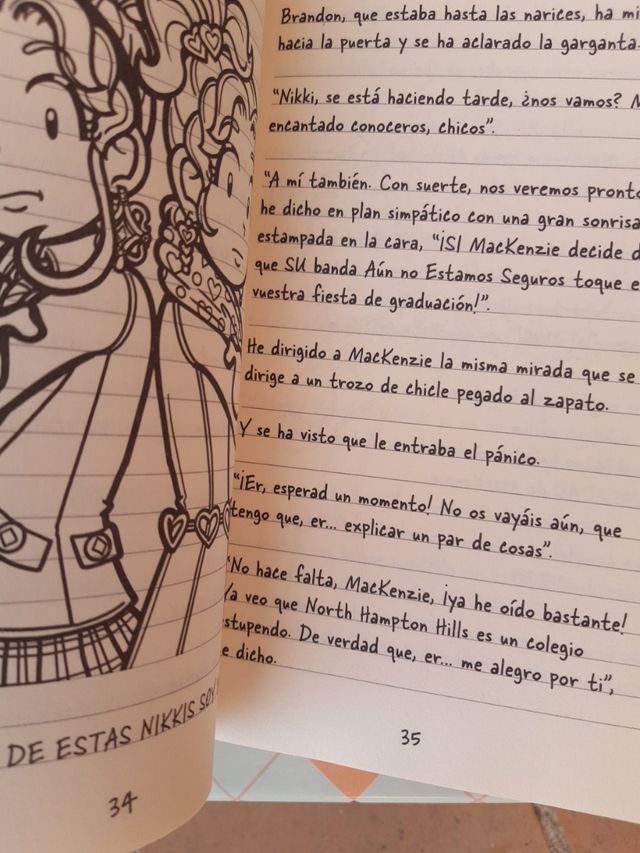 DE ESTAS NIKKIS SOY
34
Brandon, que estaba hasta las narices, ha
hacia la puerta y se ha aclarado la garganta
“Nikki, se está haciendo tarde, ¿nos vamos?
encantado conoceros, chicos”.
“A mí también. Con suerte, nos veremos pronto
he dicho en plan simpático con una gran sonrisa
estampada en la cara, “¡SI MacKenzie decide
que SU banda Aún no Estamos Seguros toque
vuestra fiesta de graduación!”.
He dirigido a MacKenzie la misma mirada que se
dirige a un trozo de chicle pegado al zapato.
Y se ha visto que le entraba el pánico.
“¡Er, esperad un momento! No os vayáis aún, que
tengo que, er... explicar un par de cosas”.
“No hace falta, MacKenzie, ¡ya he oído bastante!
Ya veo que North Hampton Hills es un colegio
stupendo. De verdad que, er... me alegro por ti”,
e dicho.
35